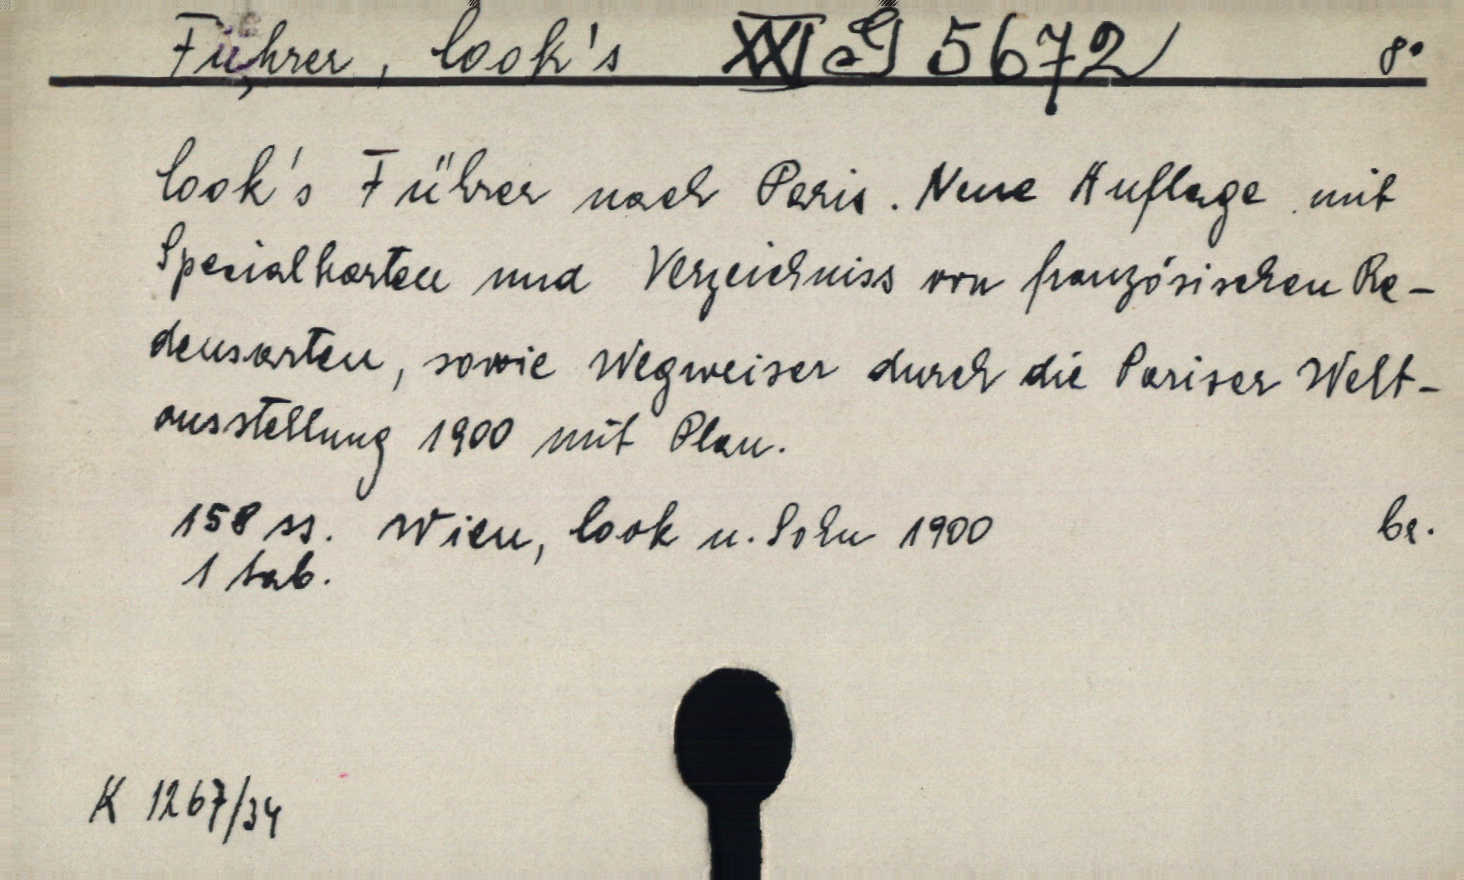 Führer, Cook's XXI G 5672 8°
Cook's Führer nach Paris. Neue Auflage mit
Specialkarten und Verzeichniss von französischen Re-
densarten, sowie Wegweiser durch die Pariser Welt-
ausstellung 1900 mit Plan.
158 ss. Wien, Cook u. Sohn 1900 br.
1 tab.
K 1267/34